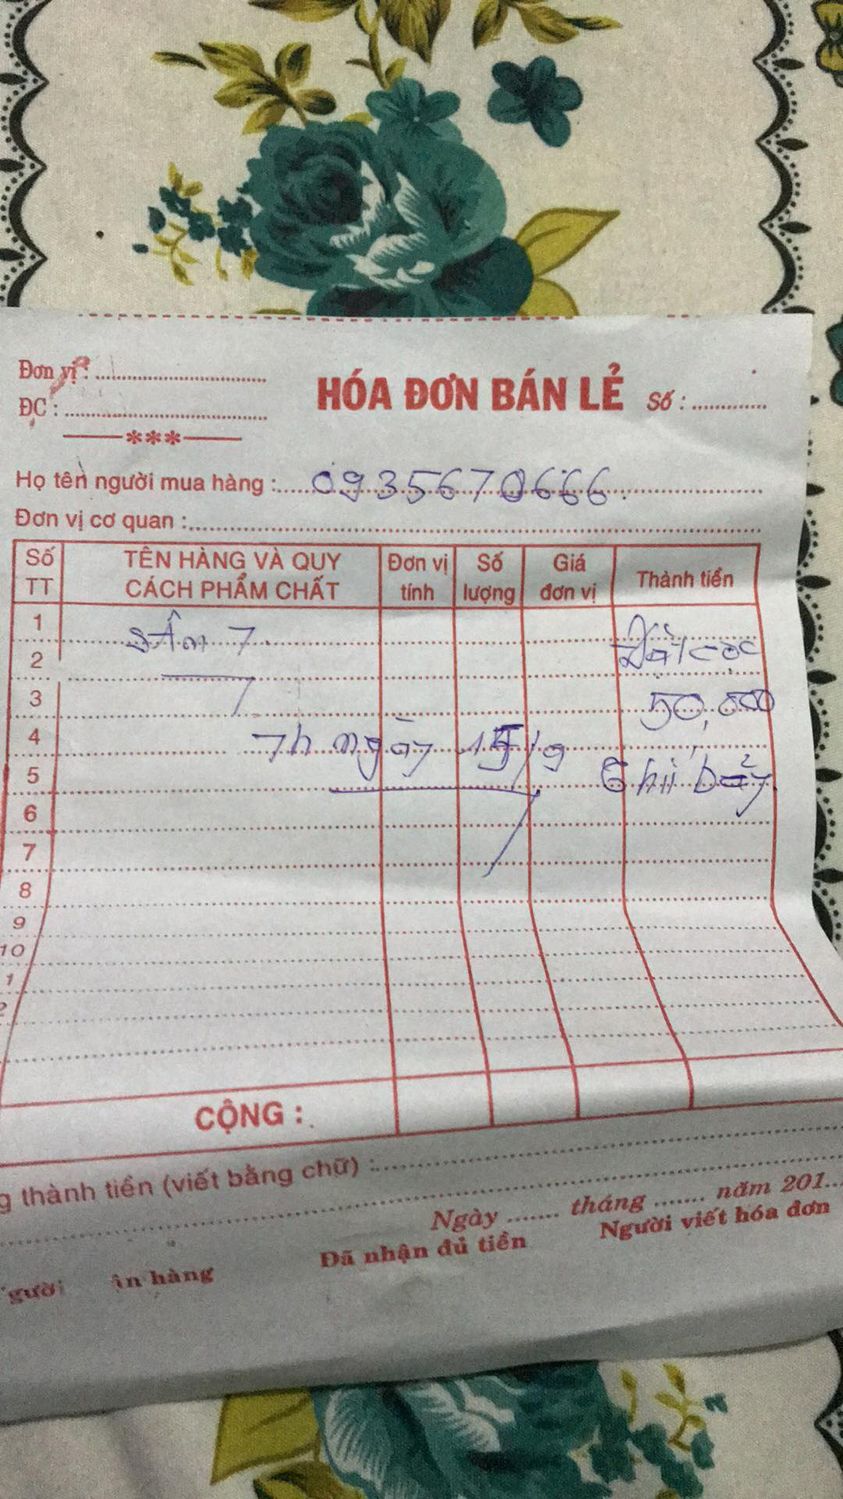 Đơn vị :
ĐC :
***
HÓA ĐƠN BÁN LẺ Số :
Họ tên người mua hàng : 0935670666
Đơn vị cơ quan :
Số TT
TÊN HÀNG VÀ QUY CÁCH PHẨM CHẤT
Đơn vị tính
Số lượng
Giá đơn vị
Thành tiền
1
sân 7
2
Đặt cọc
3
50,000
4
7h ngày 15/9
5
thứ bảy
6
7
8
9
10
1
2
CỘNG :
g thành tiền (viết bằng chữ) :
Ngày ....... tháng ....... năm 201...
gười ận hàng
Đã nhận đủ tiền
Người viết hóa đơn